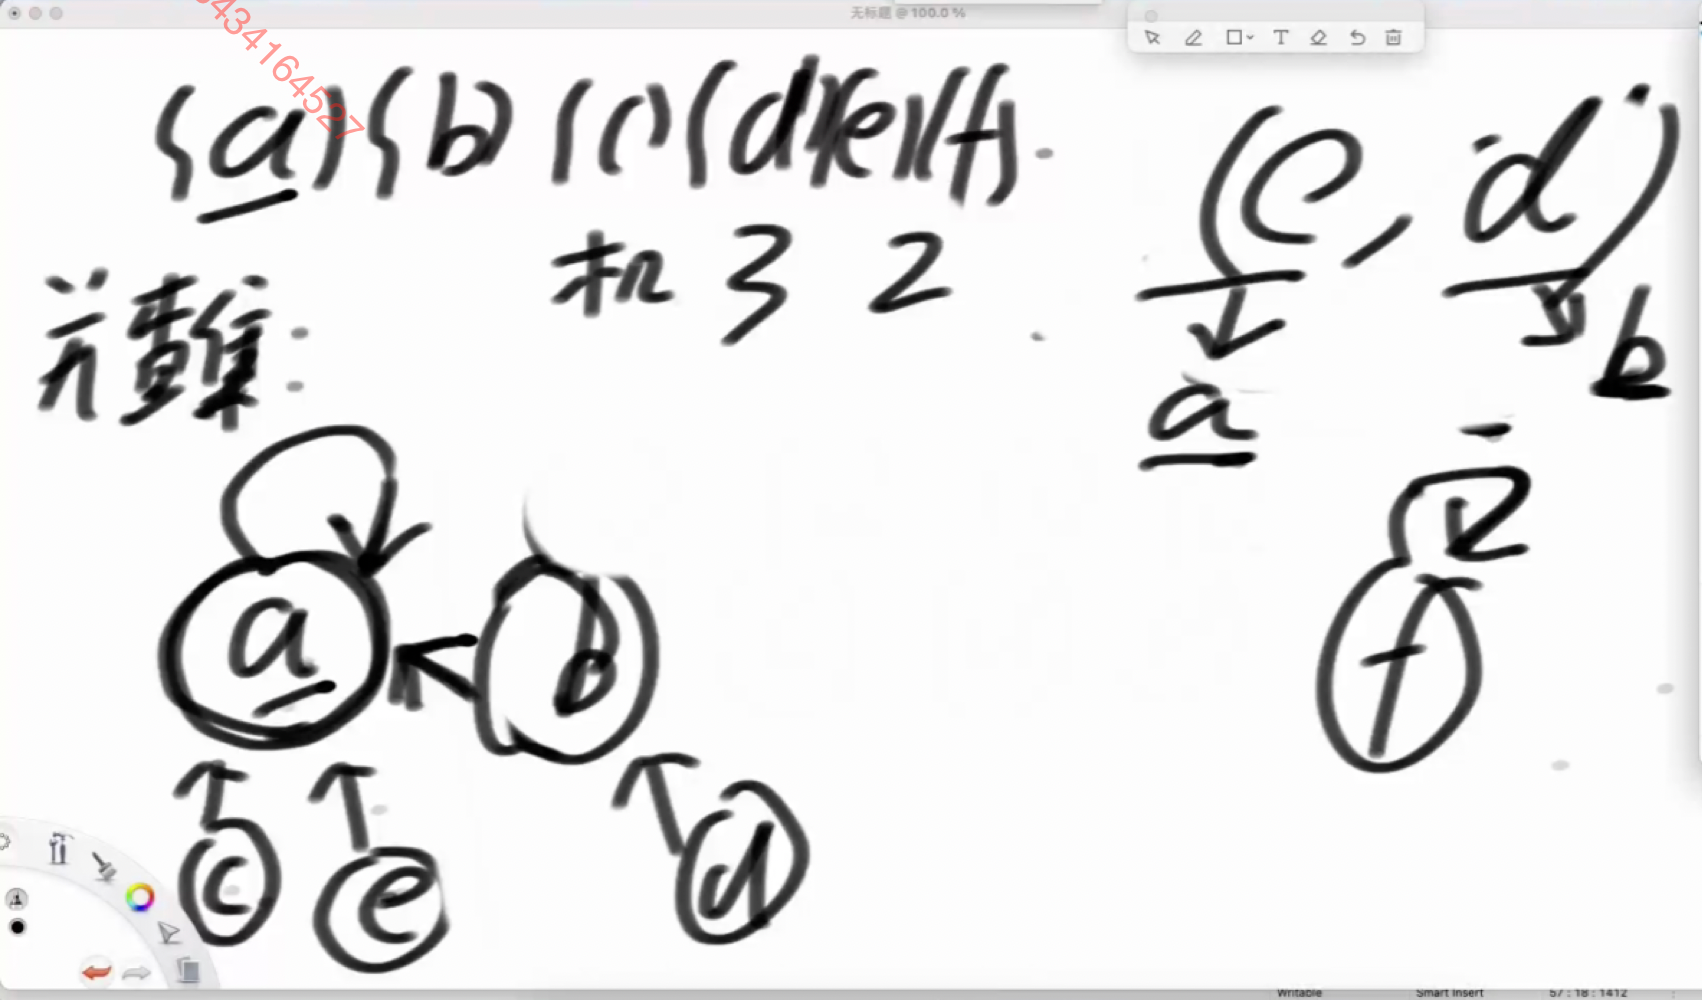 无标题 @ 100.0 %
434164527
{a} {b} (c) {d} {e} {f}
(c, d)
3 2
并查集:
a
b
a b f
c e d
Writable Smart Insert 57 : 18 : 1412